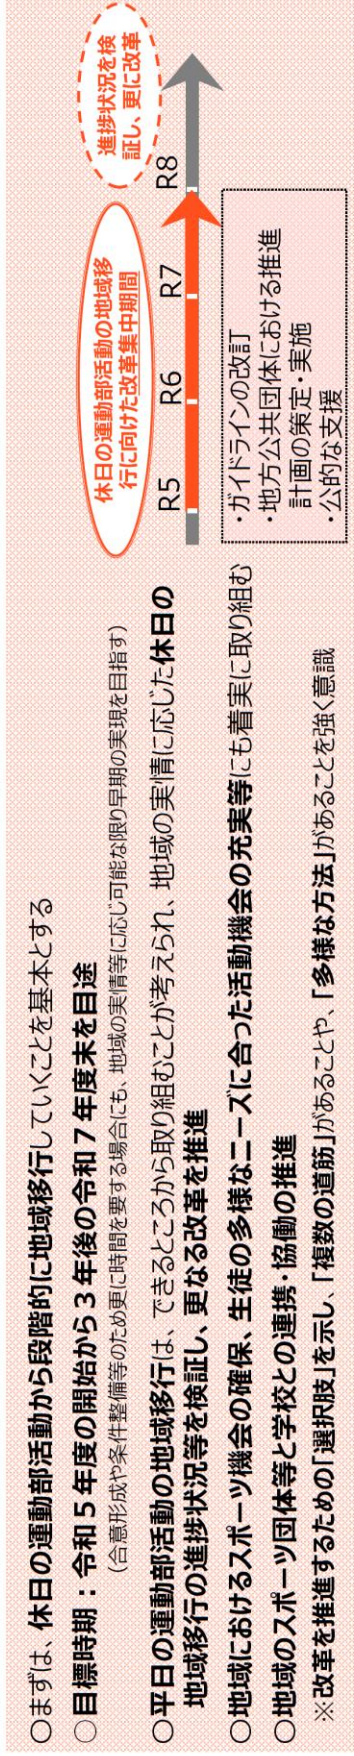 ○まずは、休日の運動部活動から段階的に地域移行していくことを基本とする
○目標時期：令和５年度の開始から３年後の令和７年度末を目途
（合意形成や条件整備等のため更に時間を要する場合にも、地域の実情等に応じ可能な限り早期の実現を目指す）
○平日の運動部活動の地域移行は、できるところから取り組むことが考えられ、地域の実情に応じた休日の
地域移行の進捗状況等を検証し、更なる改革を推進
○地域におけるスポーツ機会の確保、生徒の多様なニーズに合った活動機会の充実等にも着実に取り組む
○地域のスポーツ団体等と学校との連携・協働の推進
※改革を推進するための「選択肢」を示し、「複数の道筋」があることや、「多様な方法」があることを強く意識
休日の運動部活動の地域移
行に向けた改革集中期間
進捗状況を検
証し、更に改革
R5 R6 R7 R8
・ガイドラインの改訂
・地方公共団体における推進
計画の策定・実施
・公的な支援